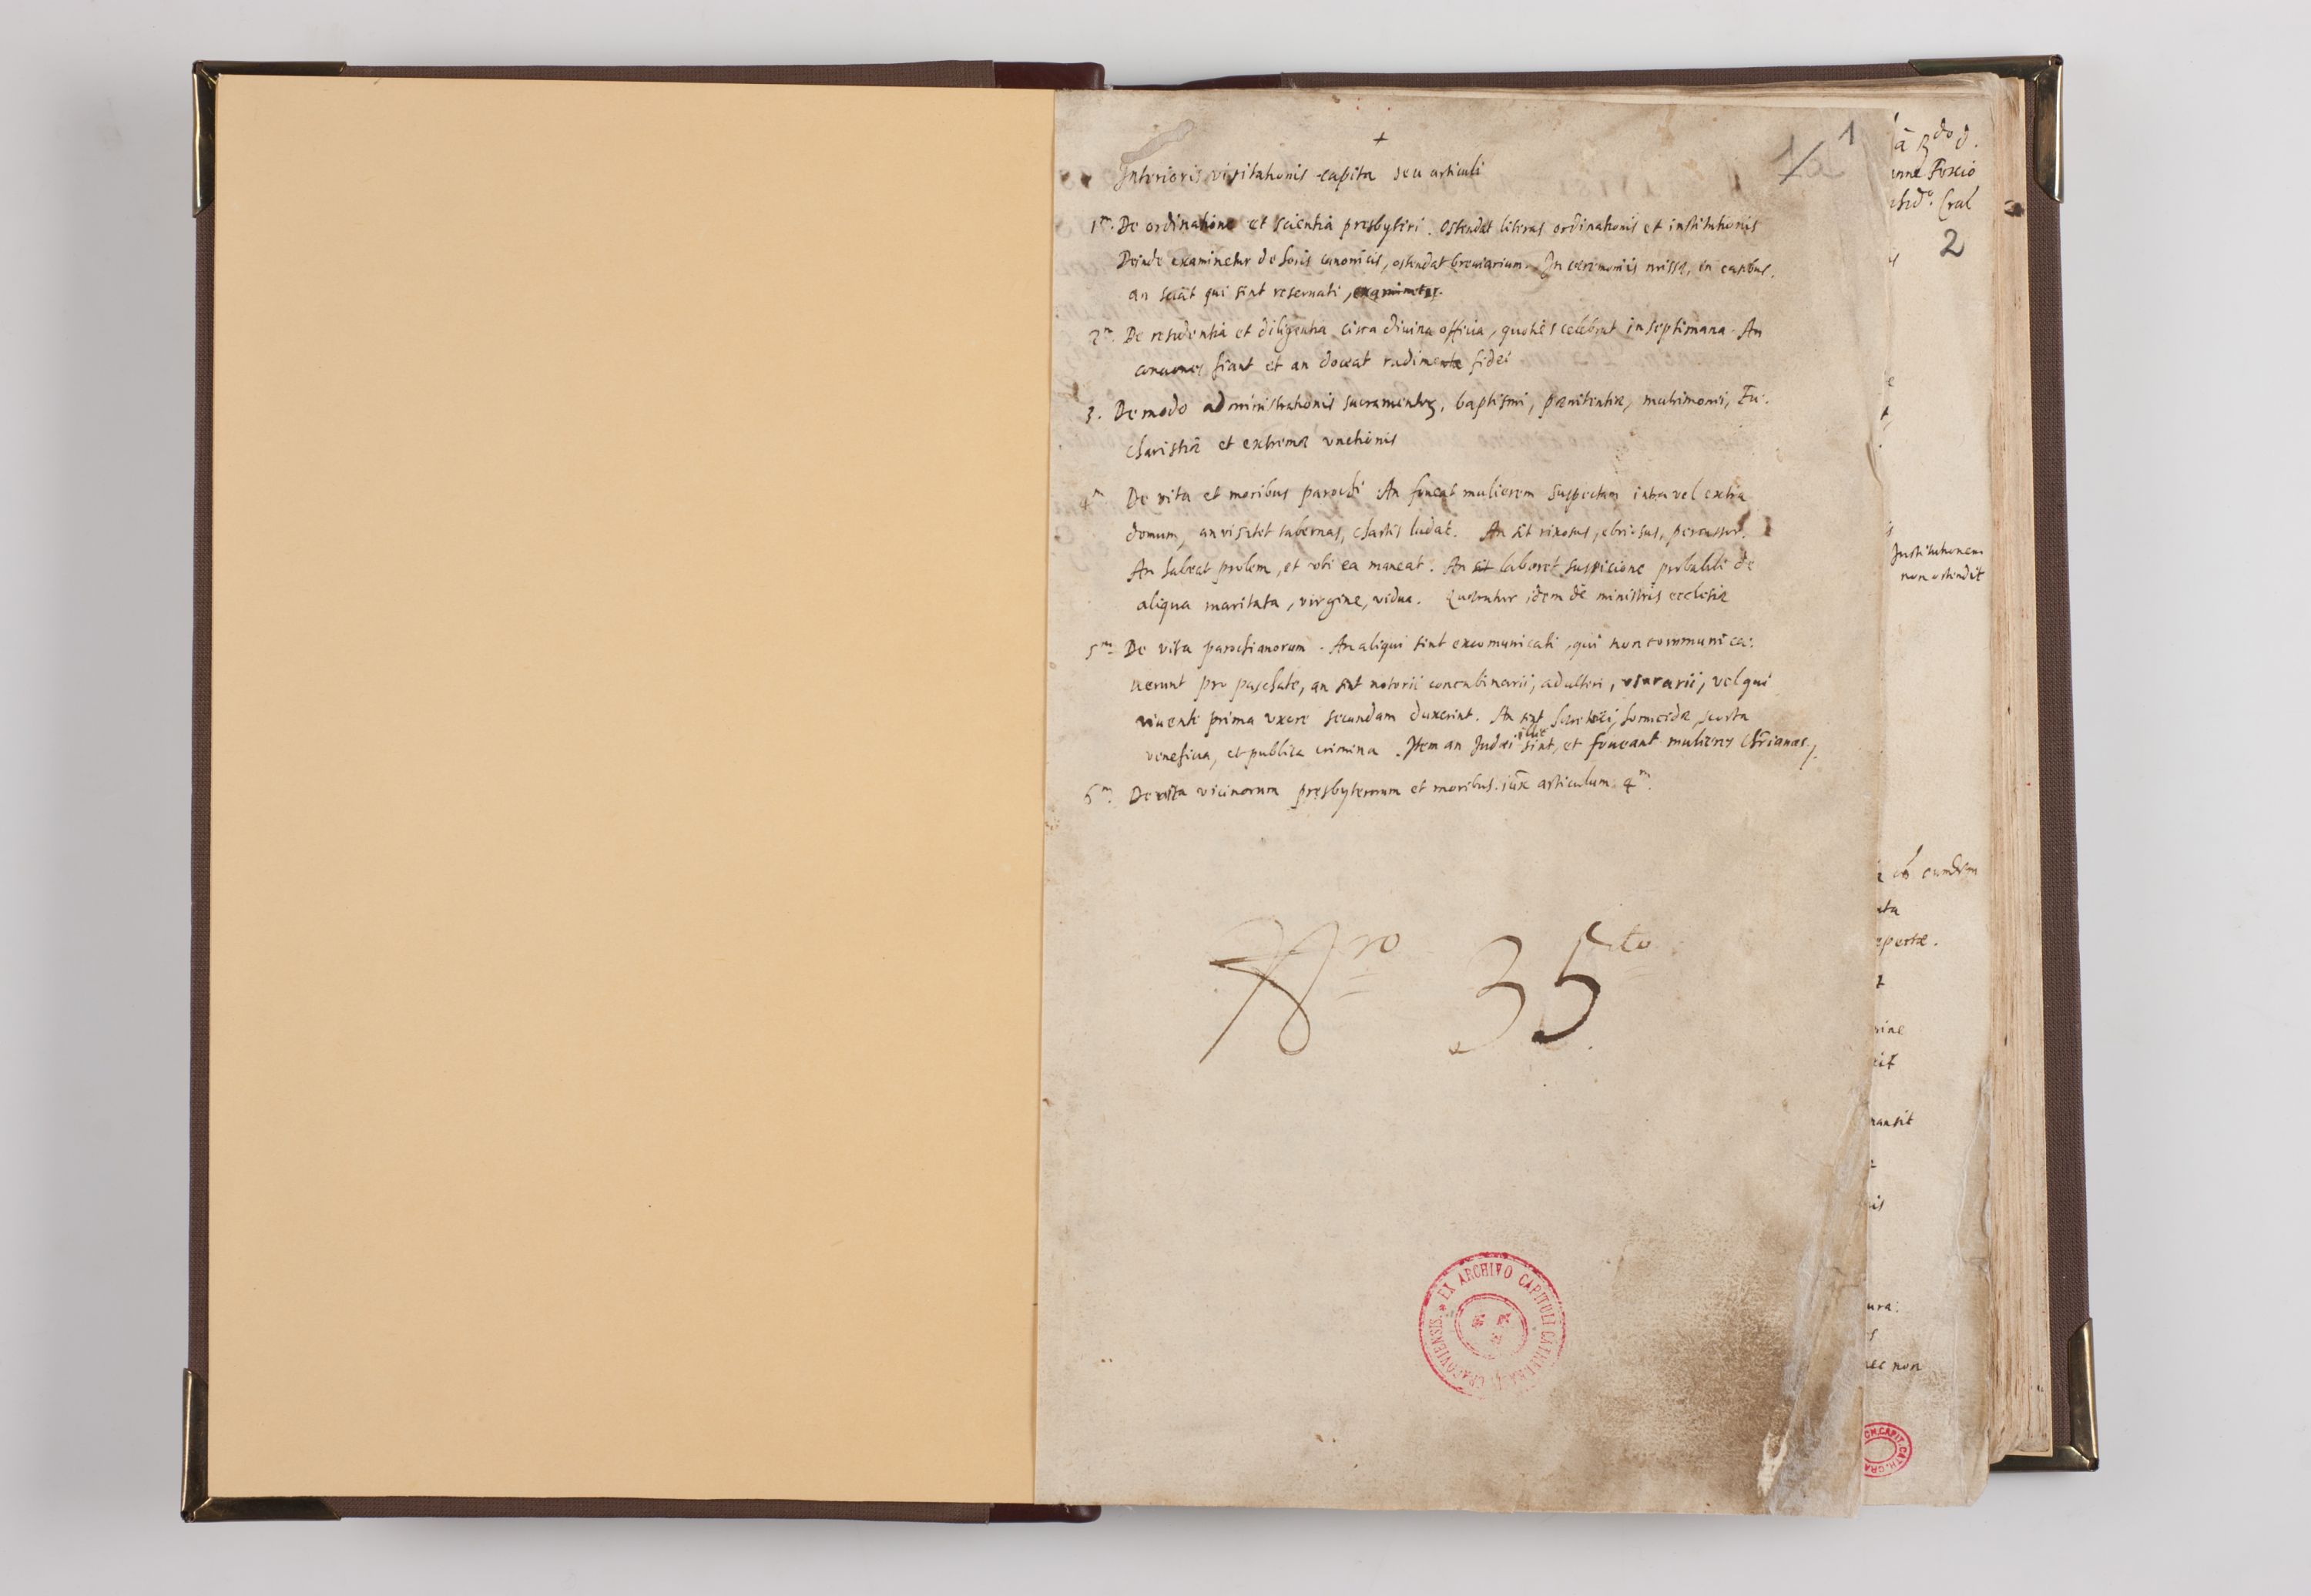 +
1
1/a
Interioris visitationis capita seu articuli
1m. De ordinatione et scientia presbyteri. Ostendat literas ordinationis et institutionis
Deinde examinetur de horis canonicis, ostendat breviarium. In ceremoniis missæ, in casibus.
an sciat qui sint reseruati, examinetur.
2m. De residentia et diligentia circa diuina officia, quoties celebret in septimana. An
conciones fiant et an doceat rudimenta fidei
3. De modo administrationis sacramentorum, baptismi, pœnitentiæ, matrimonii, Eu-
charistiæ et extremæ vnctionis
4m De vita et moribus parochi. An foueat mulierem suspectam intra vel extra
domum, an visitet tabernas, chartis ludat. An sit rixosus, ebriosus, percussor.
An habeat prolem, et vbi ea maneat. An sit laboret suspicione probabili de
aliqua maritata, virgine, vidua. Quærantur idem de ministris ecclesiæ
5m. De vita parochianorum. An aliqui sint excomunicati, qui non communica-
uerunt pro paschate, an sint notorii concubinarii, adulteri, vsurarii, vel qui
viuente prima vxore secundam duxerint. An sint hæretici, homicidæ, scorta
veneficia, et publica crimina. Item an Judæi illic sint, et foueant mulieres christianas.
6m. De vita vicinorum presbyterorum et moribus. iuxta articulum 4m.
Nro 35to
EX ARCHIVO CAPITULI CATHEDRAL. CRACOVIENSIS
2
Institutionem
non ostendit
eumdem
nec non